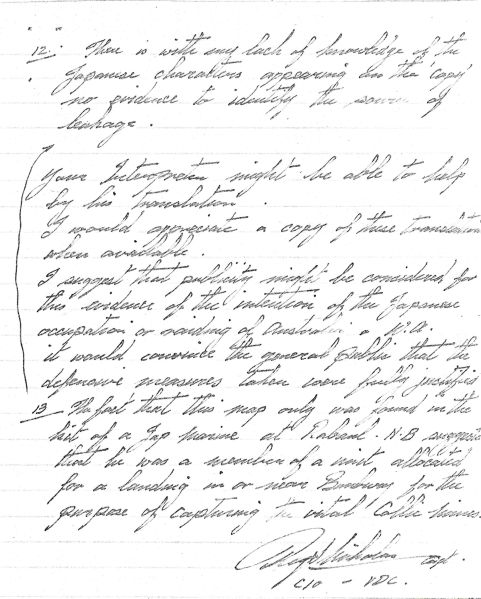 12. There is with my lack of knowledge of the
Japanese characters appearing on the 'copy'
no evidence to identify the source of
leakage.
Your Interpreter might be able to help
by his translation.
I would appreciate a copy of these translations
when available.
I suggest that publicity might be considered for
this evidence of the intention of the Japanese
occupation or raiding of Australia
it would convince the general public that the
defensive measures taken were fully justified
13 The fact that this map only was found in the
kit of a Jap Marine at Rabaul. N.B suggests
that he was a member of a unit allocated
for a landing in or near Bunbury for the
purpose of capturing the vital Collie mines.
Nicholas Capt
C/O - VDC.